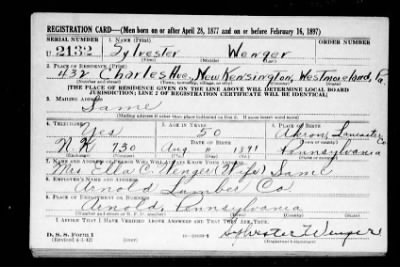 REGISTRATION CARD—(Men born on or after April 28, 1877 and on or before February 16, 1897)
SERIAL NUMBER 1. NAME (Print) ORDER NUMBER
U 2132 Sylvester Wenger
(First) (Middle) (Last)
2. PLACE OF RESIDENCE (Print)
432 Charles Ave, New Kensington, Westmoreland, Pa.
[THE PLACE OF RESIDENCE GIVEN ON THE LINE ABOVE WILL DETERMINE LOCAL BOARD
JURISDICTION; LINE 2 OF REGISTRATION CERTIFICATE WILL BE IDENTICAL]
3. MAILING ADDRESS
Same
[Mailing address if other than place indicated on line 2. If same insert word same]
4. TELEPHONE 5. AGE IN YEARS 6. PLACE OF BIRTH
Yes 50 Akron, Lancaster Co
DATE OF BIRTH (Town or county)
N.K 730 Aug 1891 Pennsylvania
7. NAME AND ADDRESS OF PERSON WHO WILL ALWAYS KNOW YOUR ADDRESS
Mrs Ella C. Wenger (Wife) Same
8. EMPLOYER'S NAME AND ADDRESS
Arnold Lumber Co
9. PLACE OF EMPLOYMENT OR BUSINESS
Arnold, Pennsylvania
I AFFIRM THAT I HAVE VERIFIED ABOVE ANSWERS AND THAT THEY ARE TRUE.
D. S. S. Form 1 Sylvester Wenger